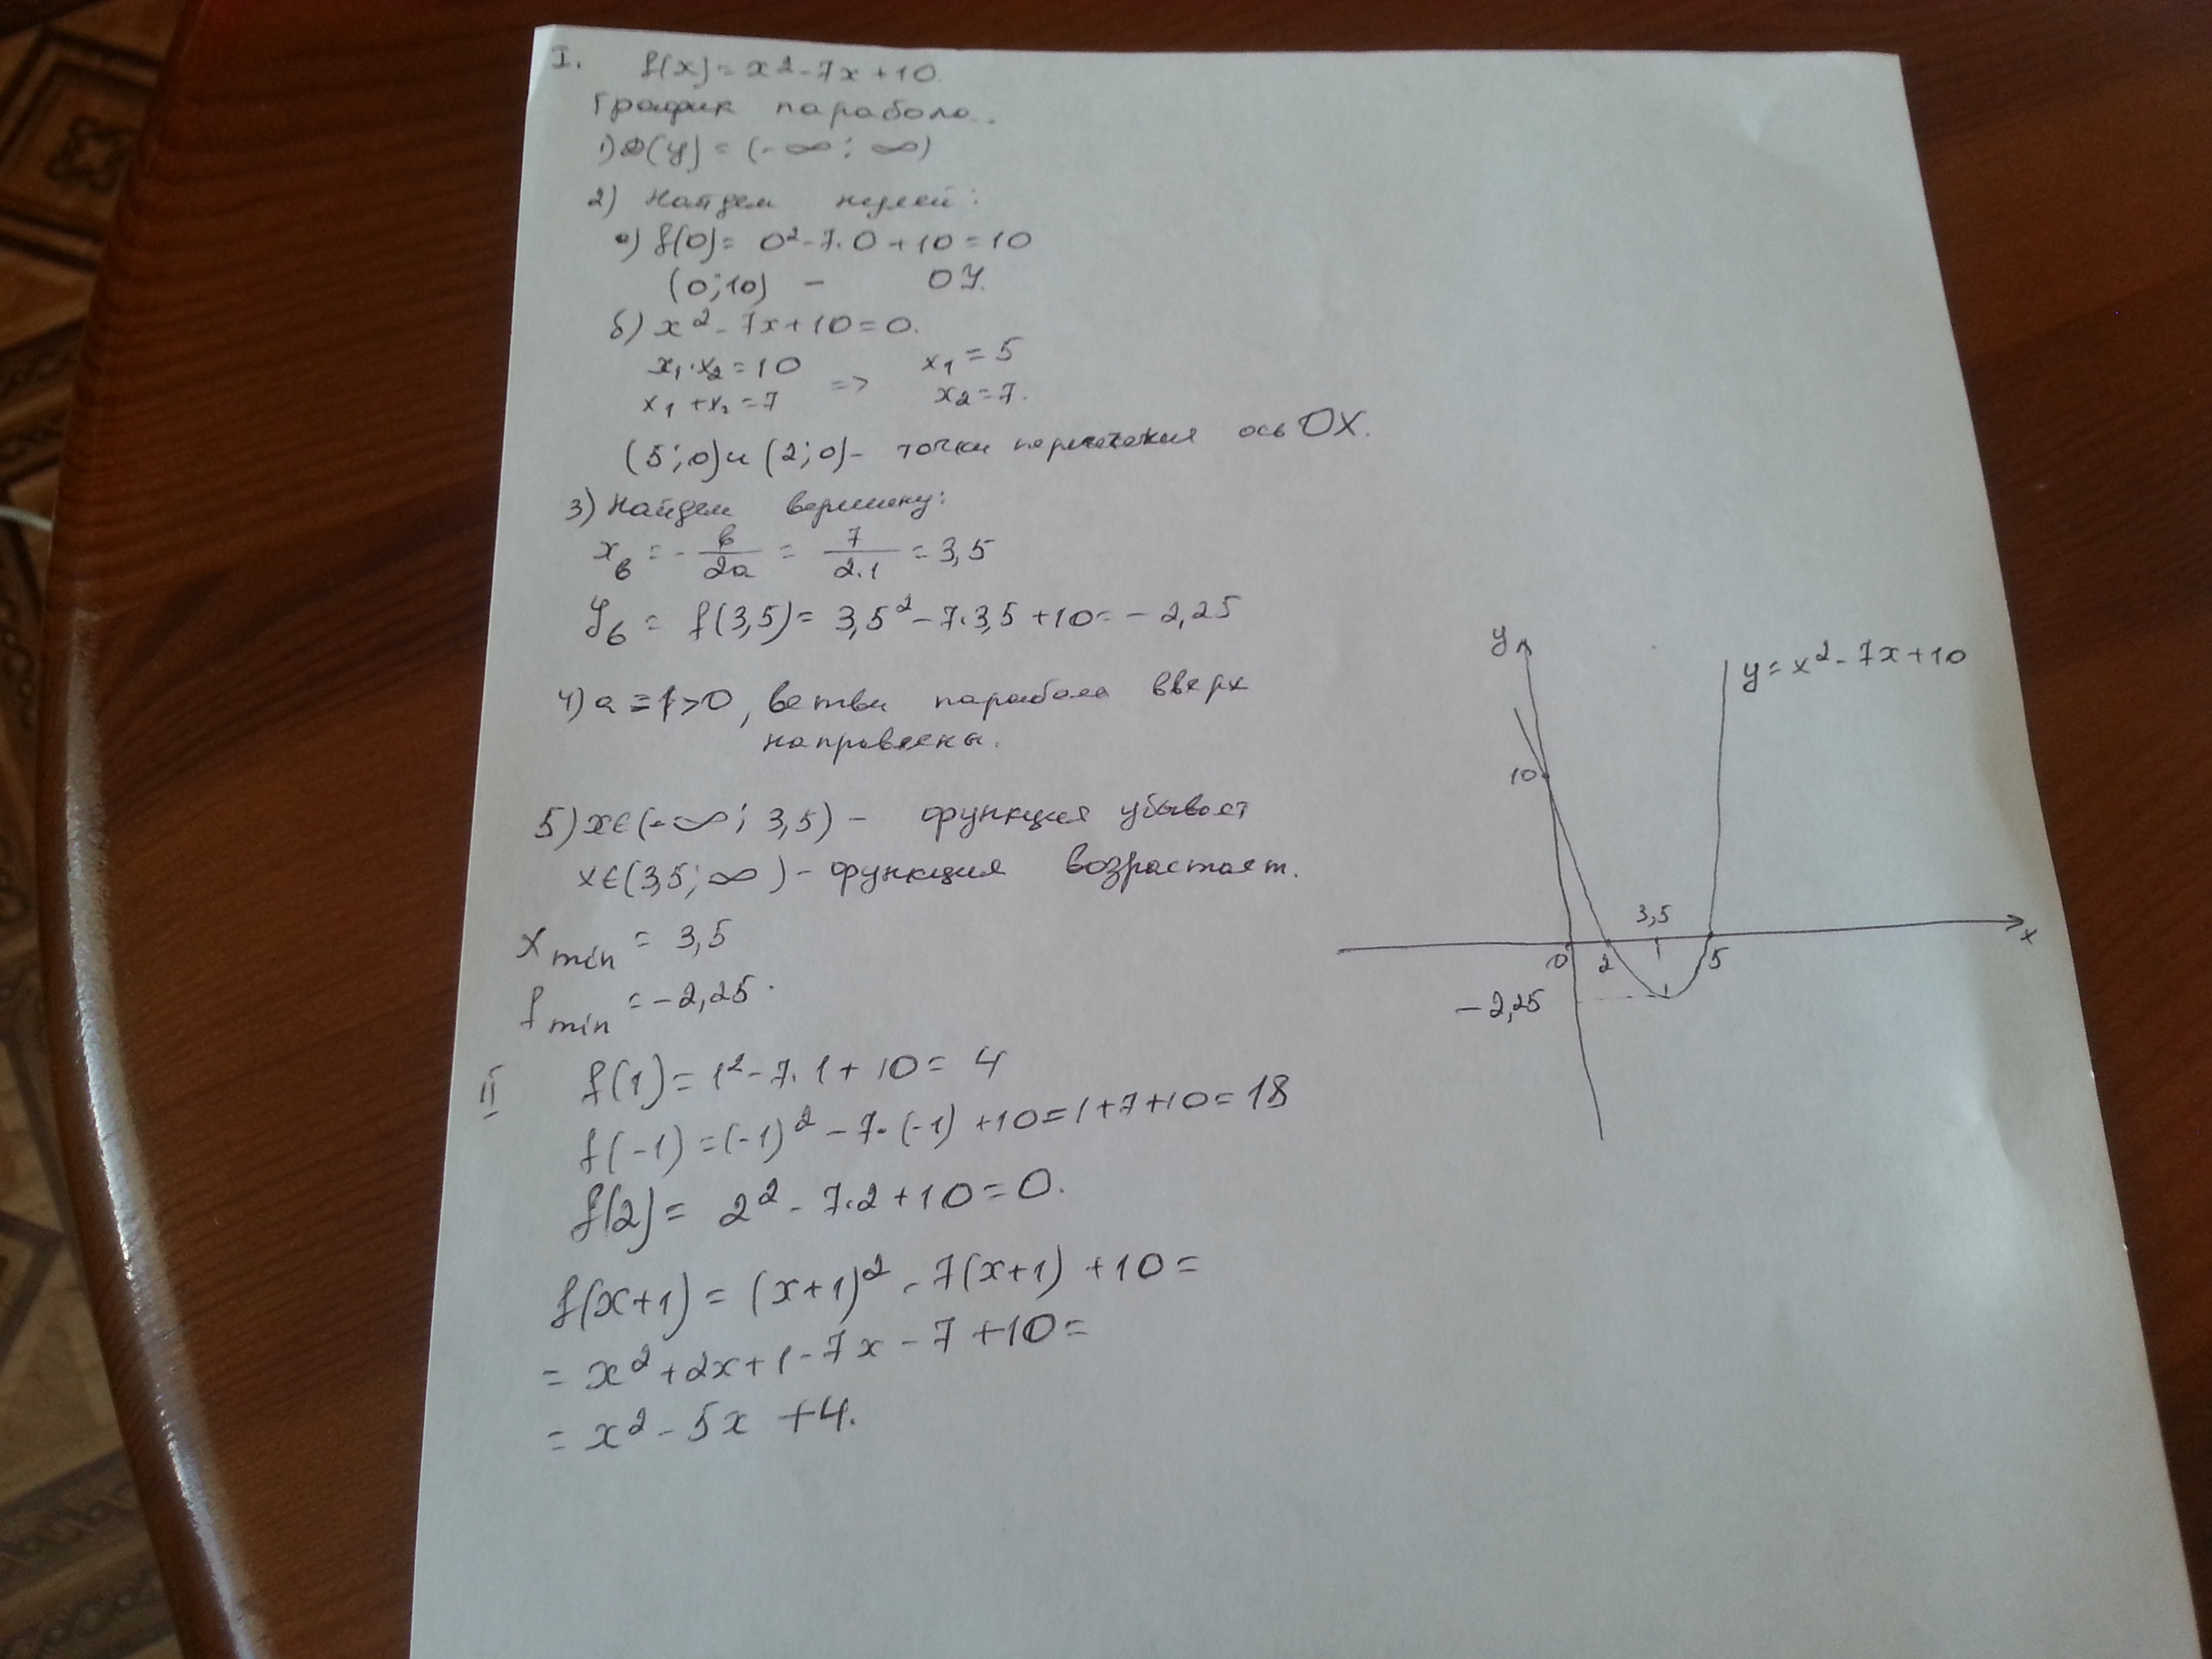 I. f(x) = x² - 7x + 10.
График парабола.
1) D(y) = (-∞; ∞)
2) Найдем нулей:
а) f(0) = 0² - 7·0 + 10 = 10
(0;10) - OY.
б) x² - 7x + 10 = 0.
x₁·x₂ = 10 => x₁ = 5
x₁ + x₂ = 7 x₂ = 7.
(5;0) и (2;0) - точки пересечения ось OX.
3) Найдем вершину:
xв = - в/2a = 7/2·1 = 3,5
yв = f(3,5) = 3,5² - 7·3,5 + 10 = -2,25
4) a = 1 > 0, ветви парабола вверх
направлены.
5) x∈(-∞; 3,5) - функция убывает
x∈(3,5; ∞) - функция возрастает.
x min = 3,5
f min = -2,25.
II f(1) = 1² - 7·1 + 10 = 4
f(-1) = (-1)² - 7·(-1) + 10 = 1 + 7 + 10 = 18
f(2) = 2² - 7·2 + 10 = 0.
f(x+1) = (x+1)² - 7(x+1) + 10 =
= x² + 2x + 1 - 7x - 7 + 10 =
= x² - 5x + 4.
y
y = x² - 7x + 10
10
3,5
0 2 5 x
-2,25